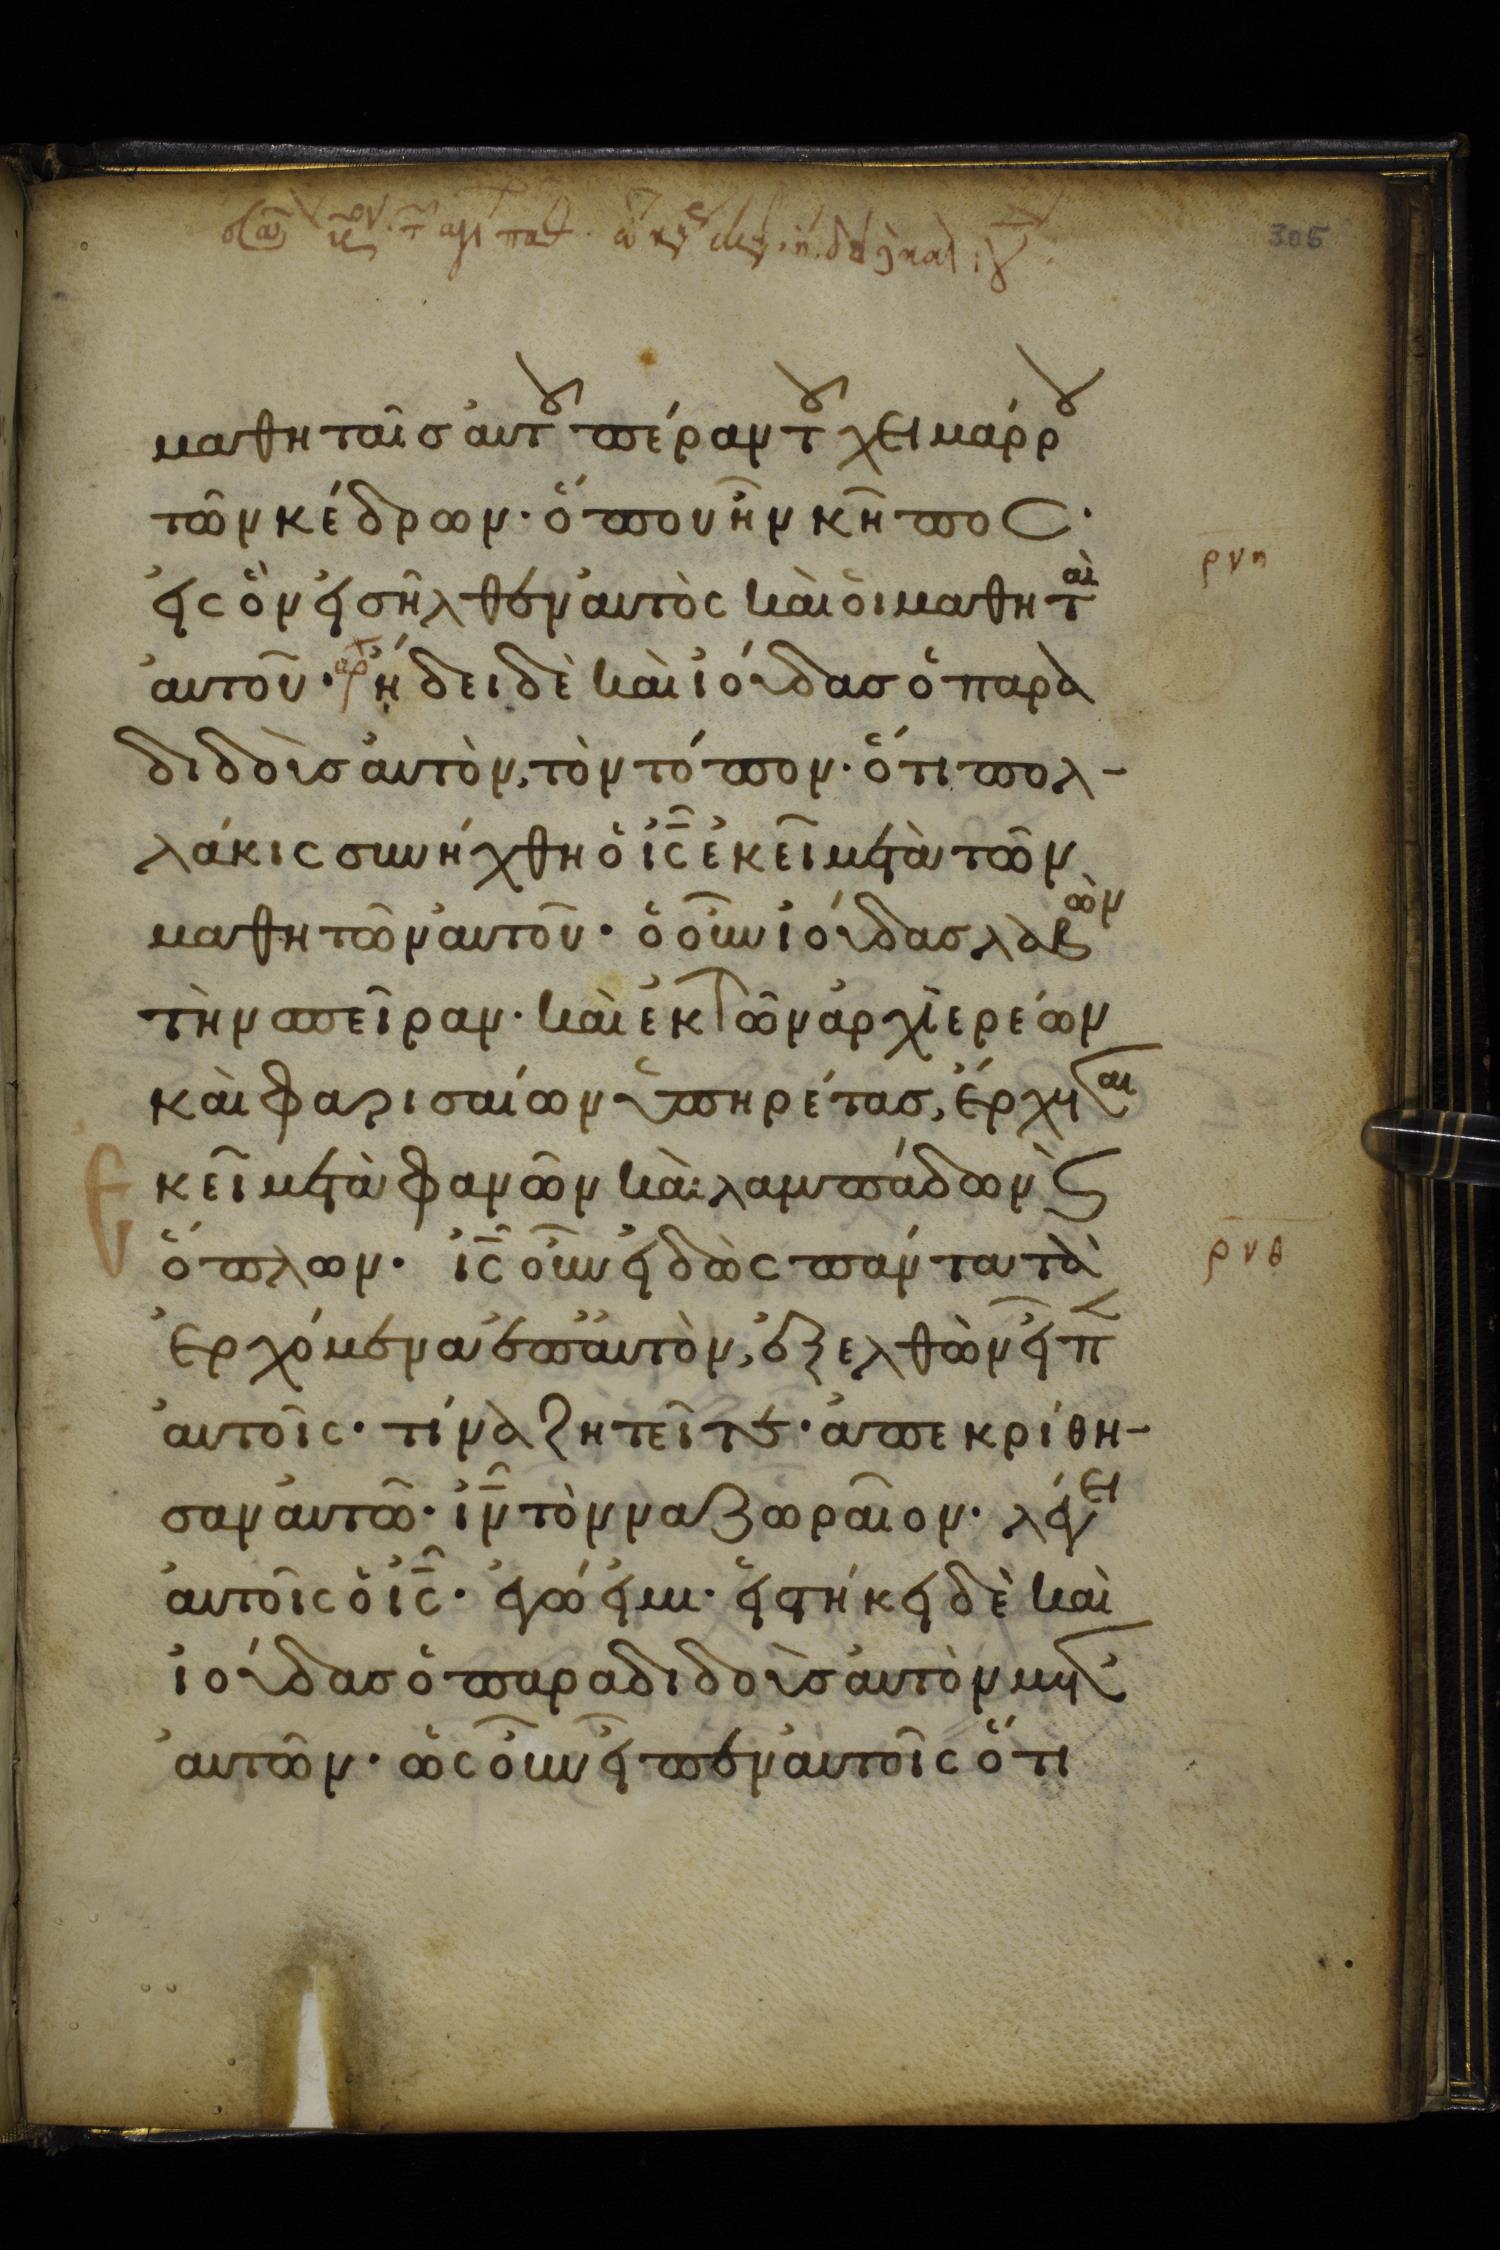 305
μαθηταῖσ ἀυτου πέραν του χειμάρρου
τῶν κέδρων· ὅπου ἦν κῆπος·
ρνη
εἰς ὃν εἰσῆλθεν ἀυτὸς καὶ ὁι μαθηταὶ
ἀυτοῦ· ἤδει δὲ καὶ ἰούδασ ὁ παρα
διδοὺσ ἀυτὸν, τὸν τόπον· ὅτι πολ-
λάκις συνήχθη ὁ ἰς ἐκεῖ μετὰ τῶν
μαθητῶν ἀυτοῦ· ὁ οὖν ἰούδασ λαβὼν
τὴν σπεῖραν· καὶ ἐκ τῶν ἀρχιερέων
καὶ φαρισαίων ὑπηρέτασ, ἔρχεται
κεῖ μετὰ φανῶν καὶ λαμπάδων ϛ
ὅπλων· ἰς οὖν εἰδὼς πάντα τὰ
ρνθ
ἐρχόμενα ἐπ ἀυτὸν, ἐξελθὼν εἶπ
ἀυτοῖς· τίνα ζητεῖτε· ἀπεκρίθη-
σαν ἀυτῶ· ἰν τὸν ναζωραῖον· λέγει
ἀυτοῖς ὁ ἰς· ἐγώ εἰμι· εἱστήκει δὲ καὶ
ἰούδασ ὁ παραδιδοὺσ ἀυτὸν μετ
ἀυτῶν· ὡς οὖν εἶπεν ἀυτοῖς ὅτι